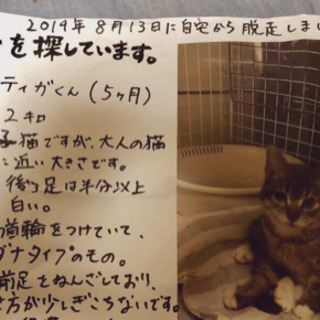 2019年8月13日に自宅から脱走しまし
を探しています。
ティガくん(5ヶ月)
2キロ
子猫ですが、大人の猫
に近い大きさです。
後ろ足は半分以上
白い。
首輪をつけていて、
ダナタイプのもの。
前足をねんざしており、
方が少しぎこちないです。